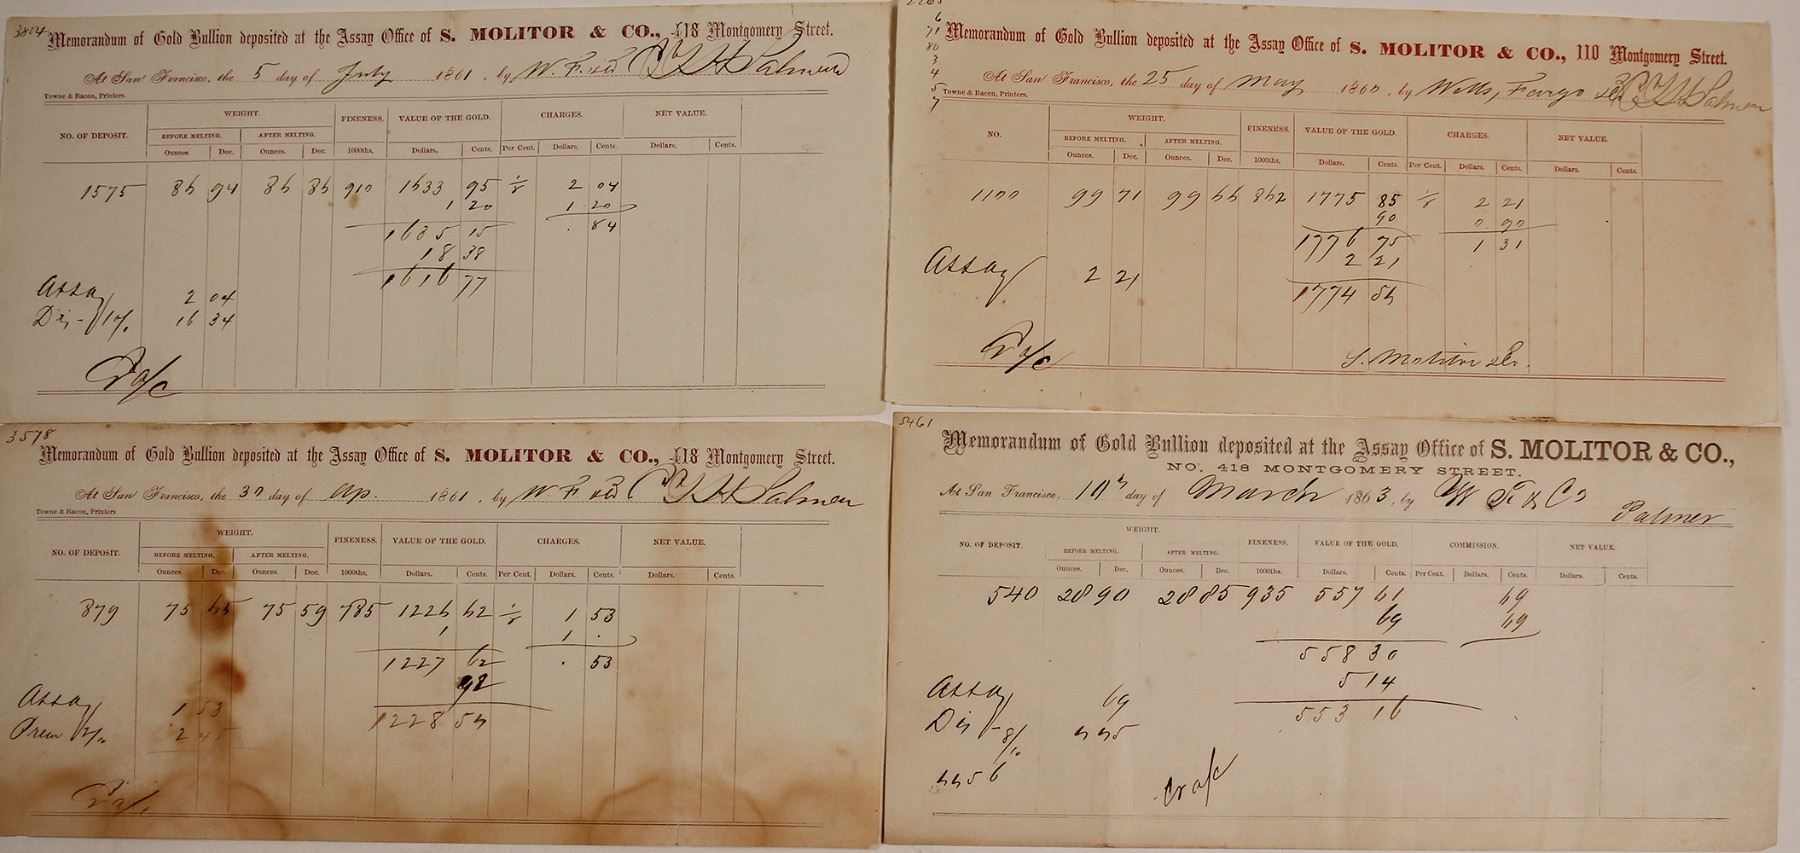 3804
Memorandum of Gold Bullion deposited at the Assay Office of S. MOLITOR & CO., 418 Montgomery Street.
At San Francisco, the 5 day of July 1861, by W. F. & Co
Towne & Bacon, Printers.
NO. OF DEPOSIT. WEIGHT. FINENESS. VALUE OF THE GOLD. CHARGES. NET VALUE.
BEFORE MELTING. AFTER MELTING.
Ounces. Dec. Ounces. Dec. 1000ths. Dollars. Cents. Per Cent. Dollars. Cents. Dollars. Cents.
1575 86 94 86 86 910 1633 95 1/8 2 04
1 20 1 20
1635 15 . 84
18 38
1616 77
Assay 2 04
Dis - 1% 16 34
Cr a/c
Memorandum of Gold Bullion deposited at the Assay Office of S. MOLITOR & CO., 110 Montgomery Street.
At San Francisco, the 25 day of May 1860, by Wells, Fargo & Co
Towne & Bacon, Printers.
NO. WEIGHT. FINENESS. VALUE OF THE GOLD. CHARGES. NET VALUE.
BEFORE MELTING. AFTER MELTING.
Ounces. Dec. Ounces. Dec. 1000ths. Dollars. Cents. Per Cent. Dollars. Cents. Dollars. Cents.
1100 99 71 99 66 862 1775 85 1/8 2 21
90 0 90
1776 75 1 31
2 21
1774 54
Assay 2 21
Cr a/c
S. Molitor & Co.
3578
Memorandum of Gold Bullion deposited at the Assay Office of S. MOLITOR & CO., 418 Montgomery Street.
At San Francisco, the 30 day of Ap. 1861, by W. F. & Co
Towne & Bacon, Printers
NO. OF DEPOSIT. WEIGHT. FINENESS. VALUE OF THE GOLD. CHARGES. NET VALUE.
BEFORE MELTING. AFTER MELTING.
Ounces. Dec. Ounces. Dec. 1000ths. Dollars. Cents. Per Cent. Dollars. Cents. Dollars. Cents.
879 75 65 75 59 785 1226 62 1/8 1 53
1 1 .
1227 62 . 53
92
1228 54
Assay 1 53
Prem 2 45
Cr a/c
5461
Memorandum of Gold Bullion deposited at the Assay Office of S. MOLITOR & CO.,
NO. 418 MONTGOMERY STREET.
At San Francisco, 10th day of March 1863, by W F & Co
Palmer
NO. OF DEPOSIT. WEIGHT. FINENESS. VALUE OF THE GOLD. COMMISSION. NET VALUE.
BEFORE MELTING. AFTER MELTING.
Ounces. Dec. Ounces. Dec. 1000ths. Dollars. Cents. Per Cent. Dollars. Cents. Dollars. Cents.
540 28 90 28 85 935 557 61 69
69 69
558 30
5 14
553 16
Assay 69
Dis - 8/10 4 45
Cr a/c